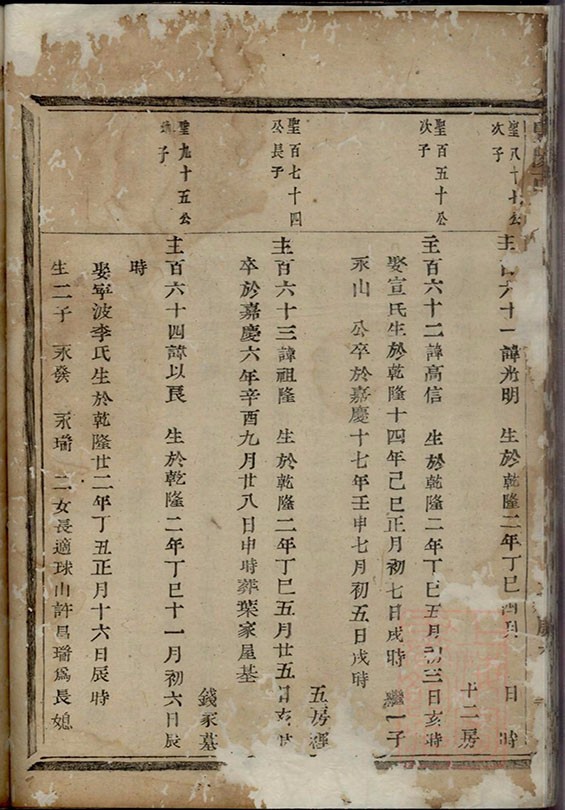 聖八十七公
次子
主百六十一諱光明　生於乾隆二年丁巳　日　時
十二房
聖百五十公
次子
主百六十二諱高信　生於乾隆二年丁巳五月初三日亥時
娶宣氏生於乾隆十四年己巳正月初七日戌時　繼一子
永山　公卒於嘉慶十七年壬申七月初五日戌時
五房
聖百七十四
公長子
主百六十三諱祖隆　生於乾隆二年丁巳五月廿五日亥時
卒於嘉慶六年辛酉九月廿八日申時葬葉家屋基
錢家墓
聖九十五公
子
主百六十四諱以良　生於乾隆二年丁巳十一月初六日辰
時
娶寧波李氏生於乾隆廿二年丁丑正月十六日辰時
生二子　永發　永璠　二女長適球山許昌璠爲長媳